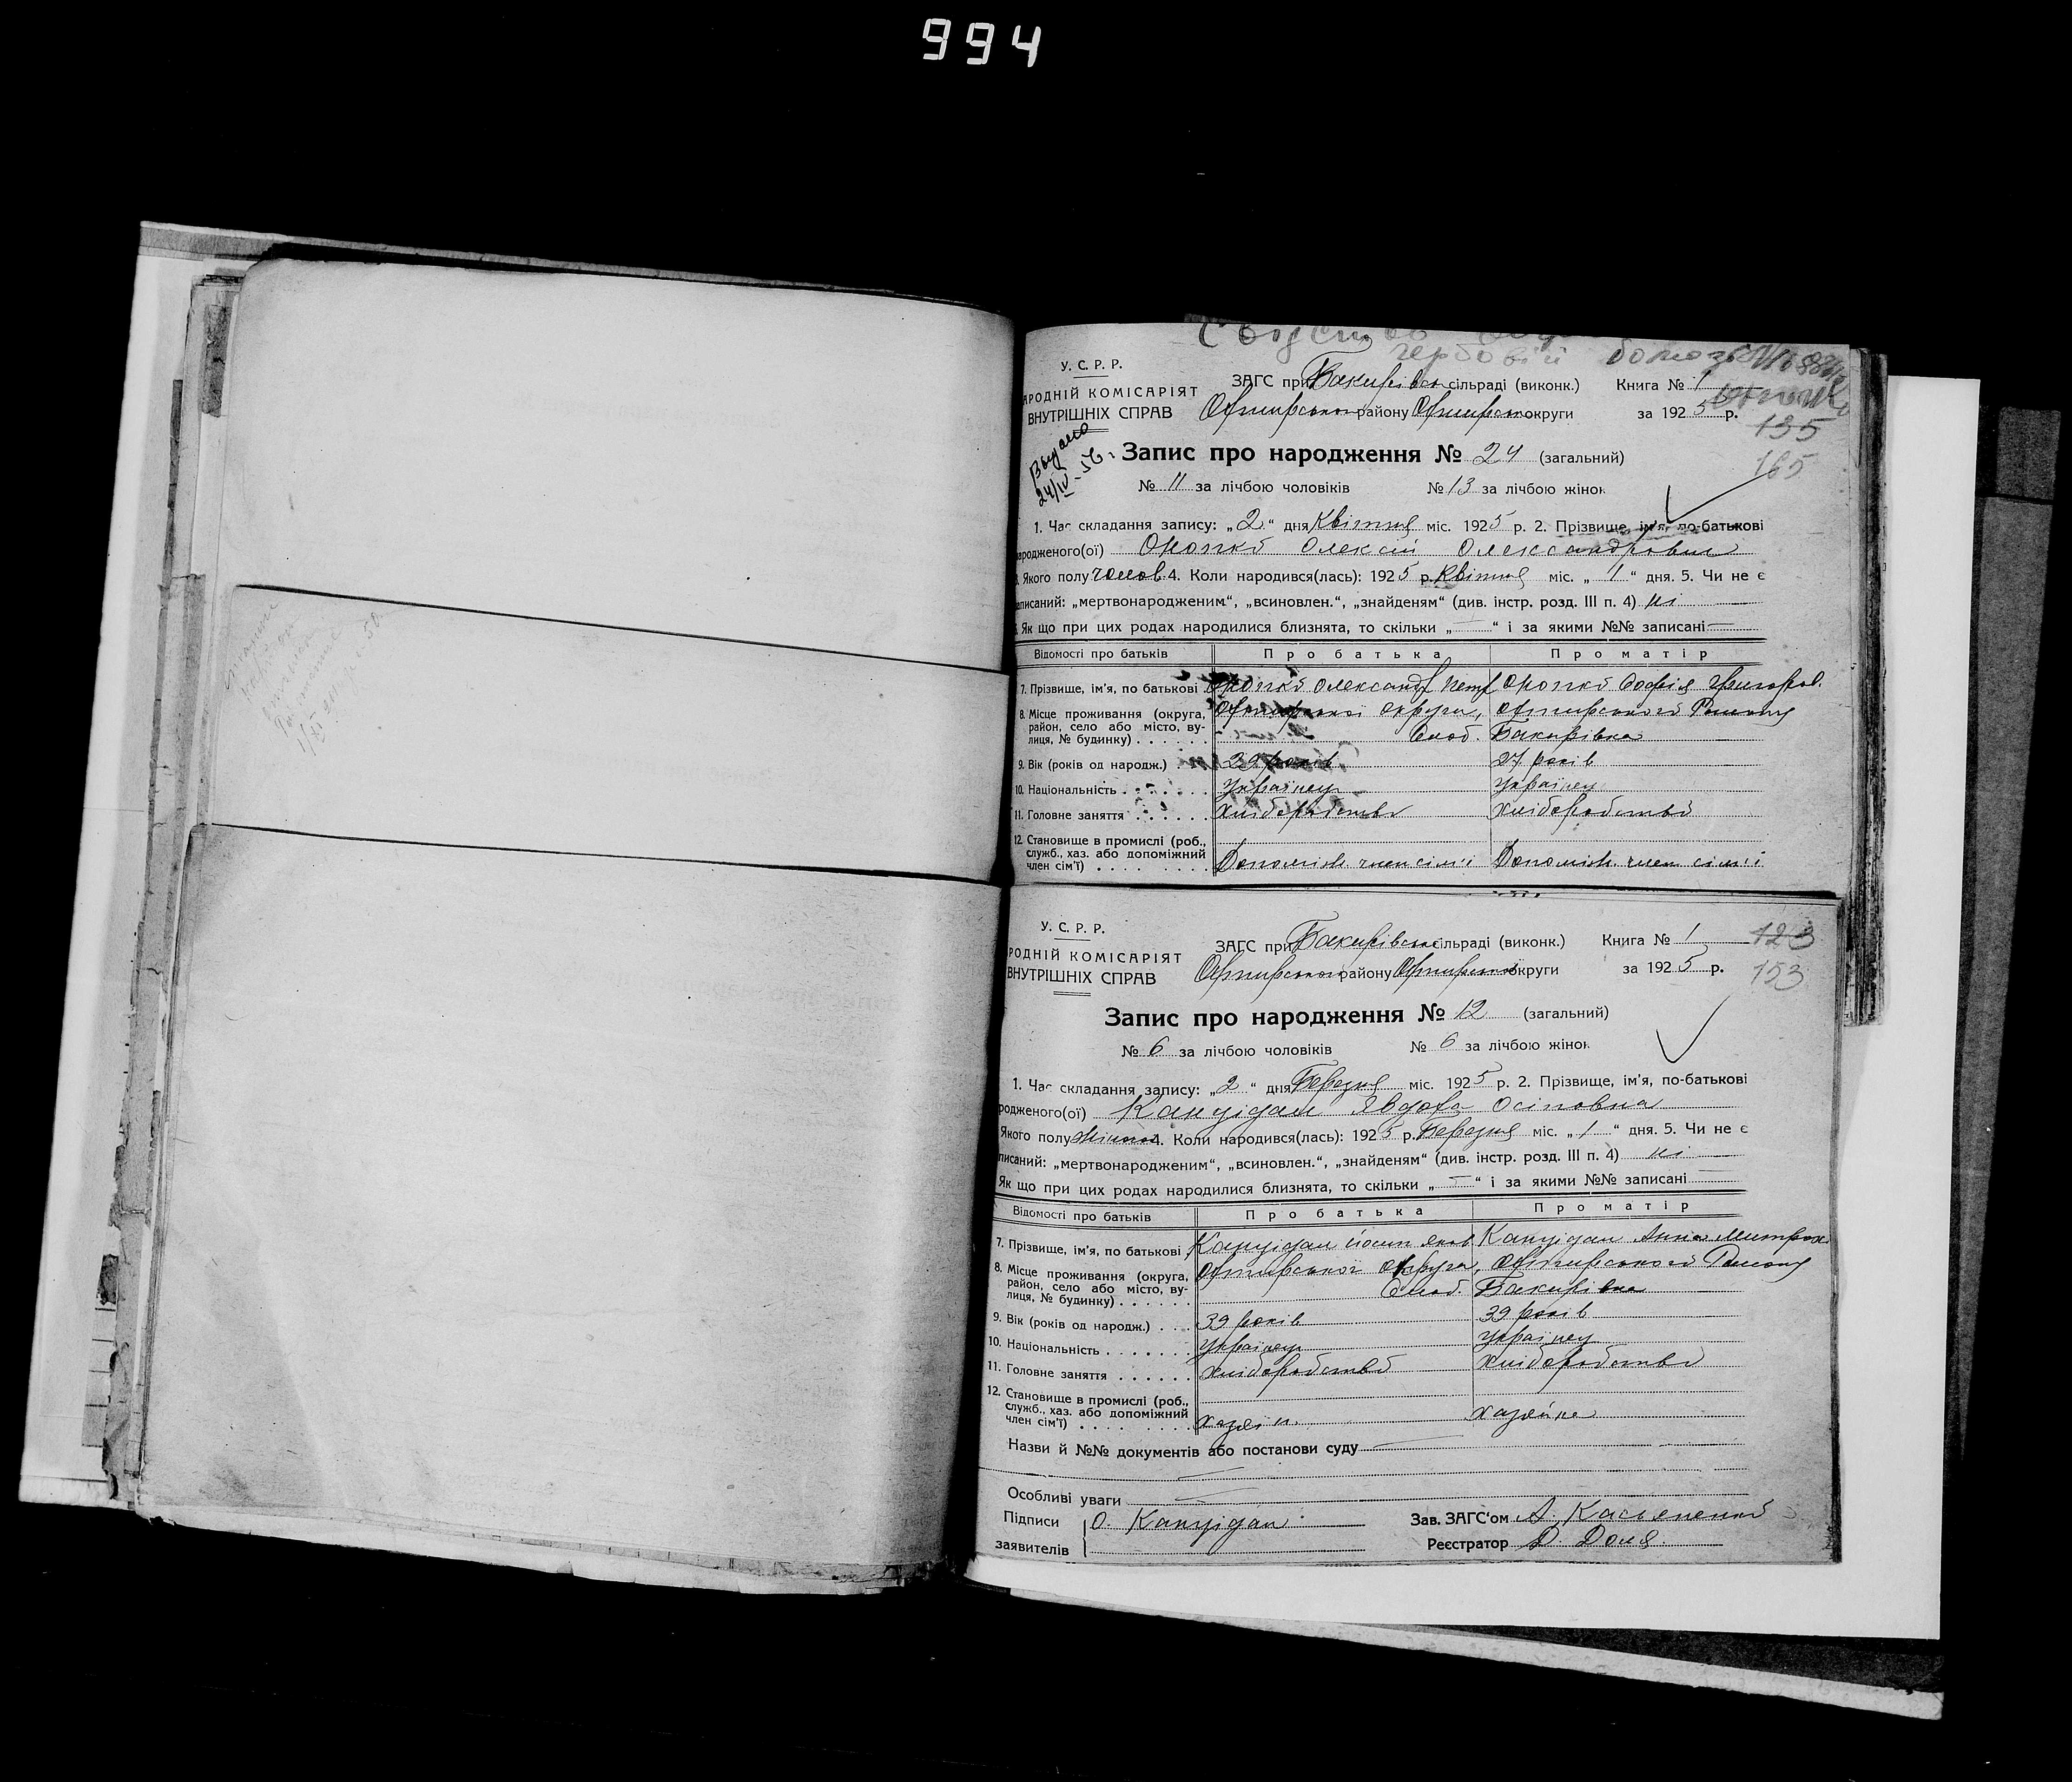 994
чербовій
У. С. Р. Р.
РОДНІЙ КОМІСАРІЯТ
ВНУТРІШНІХ СПРАВ
ЗАГС при Бакирівськ сільраді (виконк.) Книга № 1
Охтирської району Охтирської округи за 1925 р.
135
165
Видано
24/IV-56.
Запис про народження № 24 (загальний)
№ 11 за лічбою чоловіків № 13 за лічбою жінок
1. Час складання запису: „2“ дня Квітня міс. 1925 р. 2. Прізвище, ім'я, по-батькові
народженого(ої) Олексій Олександрович
Якого полу чолов. 4. Коли народився(лась): 1925 р. Квітня міс. „1“ дня. 5. Чи не є
записаний: „мертвонародженим“, „всиновлен.“, „знайденям“ (див. інстр. розд. III п. 4) ні
Як що при цих родах народилися близнята, то скільки „—“ і за якими №№ записані —
Відомості про батьків Про батька Про матір
7. Прізвище, ім'я, по батькові Олександр Петр Софія Григоров.
8. Місце проживання (округа, Охтирської округи, Охтирського Району
район, село або місто, ву- Слоб. Бакирівка
лиця, № будинку) . . . . . .
9. Вік (років од народж.) . 29 років 27 років
10. Національність . . . . . . . Українец Українец
11. Головне заняття . . . . . . Хліборобство Хліборобство
12. Становище в промислі (роб.,
служб., хаз. або допоміжний
член сім'ї) . . . . . . . . Допоміж. член сім'ї Допоміж. член сім'ї
У. С. Р. Р.
РОДНІЙ КОМІСАРІЯТ
ВНУТРІШНІХ СПРАВ
ЗАГС при Бакирівськ сільраді (виконк.) Книга № 1
Охтирської району Охтирської округи за 1925 р.
123
153
Запис про народження № 12 (загальний)
№ 6 за лічбою чоловіків № 6 за лічбою жінок
1. Час складання запису: „2“ дня Березня міс. 1925 р. 2. Прізвище, ім'я, по-батькові
родженого(ої) Капуідан Явдоха Осіповна
Якого полу жіноч. 4. Коли народився(лась): 1925 р. Березня міс. „1“ дня. 5. Чи не є
писаний: „мертвонародженим“, „всиновлен.“, „знайденям“ (див. інстр. розд. III п. 4) ні
Як що при цих родах народилися близнята, то скільки „—“ і за якими №№ записані
Відомості про батьків Про батька Про матір
7. Прізвище, ім'я, по батькові Капуідан Йосип Яков Капуідан Анна Митроx.
8. Місце проживання (округа, Охтирської округи, Охтирського Району
район, село або місто, ву- Слоб. Бакирівка
лиця, № будинку) . . . . . .
9. Вік (років од народж.) . . . 39 років 39 років
10. Національність . . . . . . . Українец Українец
11. Головне заняття . . . . . . Хліборобство Хліборобство
12. Становище в промислі (роб.,
служб., хаз. або допоміжний
член сім'ї) . . . . . . . . Хазяїн. Хазяйка
Назви й №№ документів або постанови суду —
Особливі уваги
Підписи О. Капуідан Зав. ЗАГС'ом А. Касьяненко
заявителів Реєстратор Д. Доля.